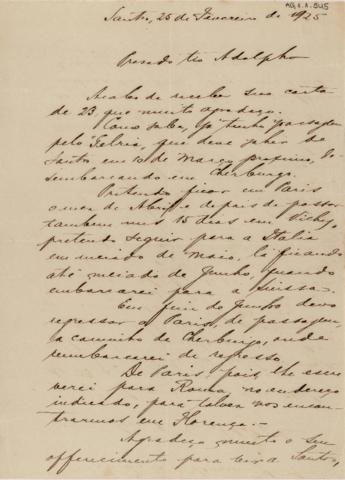 AG.1.A.5U5
Santos, 25 de Fevereiro de 1925
Presado tio Adolpho
Acabo de receber sua carta
de 23 que muito agradeço.
Como sabe, já tenho passagem
pelo "Zelria", que deve sahir de
Santos em 10 de Março proximo, de-
sembarcando em Cherburgo.
Pretendo ficar em Paris
o mez de Abril e depois de passar
tambem uns 15 dias em Vichy,
pretendo seguir para a Italia
em meiado de Maio, lá ficando
até meiado de Junho, quando
embarcarei para a Suissa.
Em fim de Junho devo
regressar a Paris, de passagem,
a caminho de Cherburgo, onde
reembarcarei de regresso.
De Paris pois, lhe escre
verei para Roma no endereço
indicado, para talvez nos encon-
trarmos em Florença.-
Agradeço muito o seu
offerecimento para vir a Santos,